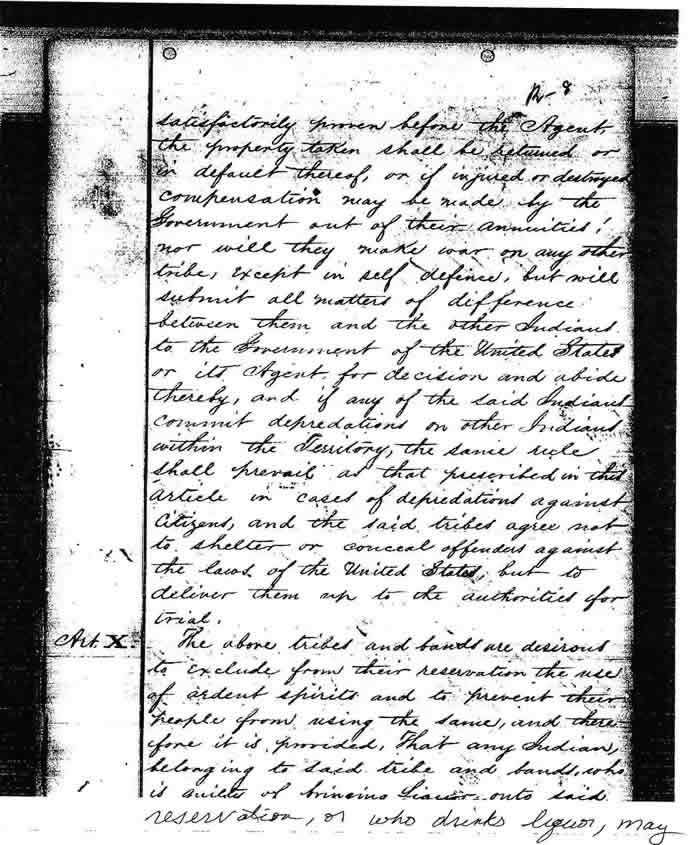 12-8
satisfactorily proven before the Agent,
the property taken shall be returned or
in default thereof, or if injured or destroyed
compensation may be made by the
Government out of their annuities;
nor will they make war on any other
tribe, except in self defence, but will
submit all matters of difference
between them and the other Indians
to the Government of the United States
or its Agent, for decision and abide
thereby, and if any of the said Indians
commit depredations on other Indians
within the Territory, the same rule
shall prevail as that prescribed in this
article in cases of depredations against
Citizens, and the said tribes agree not
to shelter or conceal offenders against
the laws of the United States, but to
deliver them up to the authorities for
trial.
Art. X. The above tribes and bands are desirous
to exclude from their reservation the use
of ardent spirits and to prevent their
people from using the same, and there
fore it is provided, That any Indian,
belonging to said tribe and bands, who
is guilty of bringing liquor onto said
reservation, or who drinks liquor, may